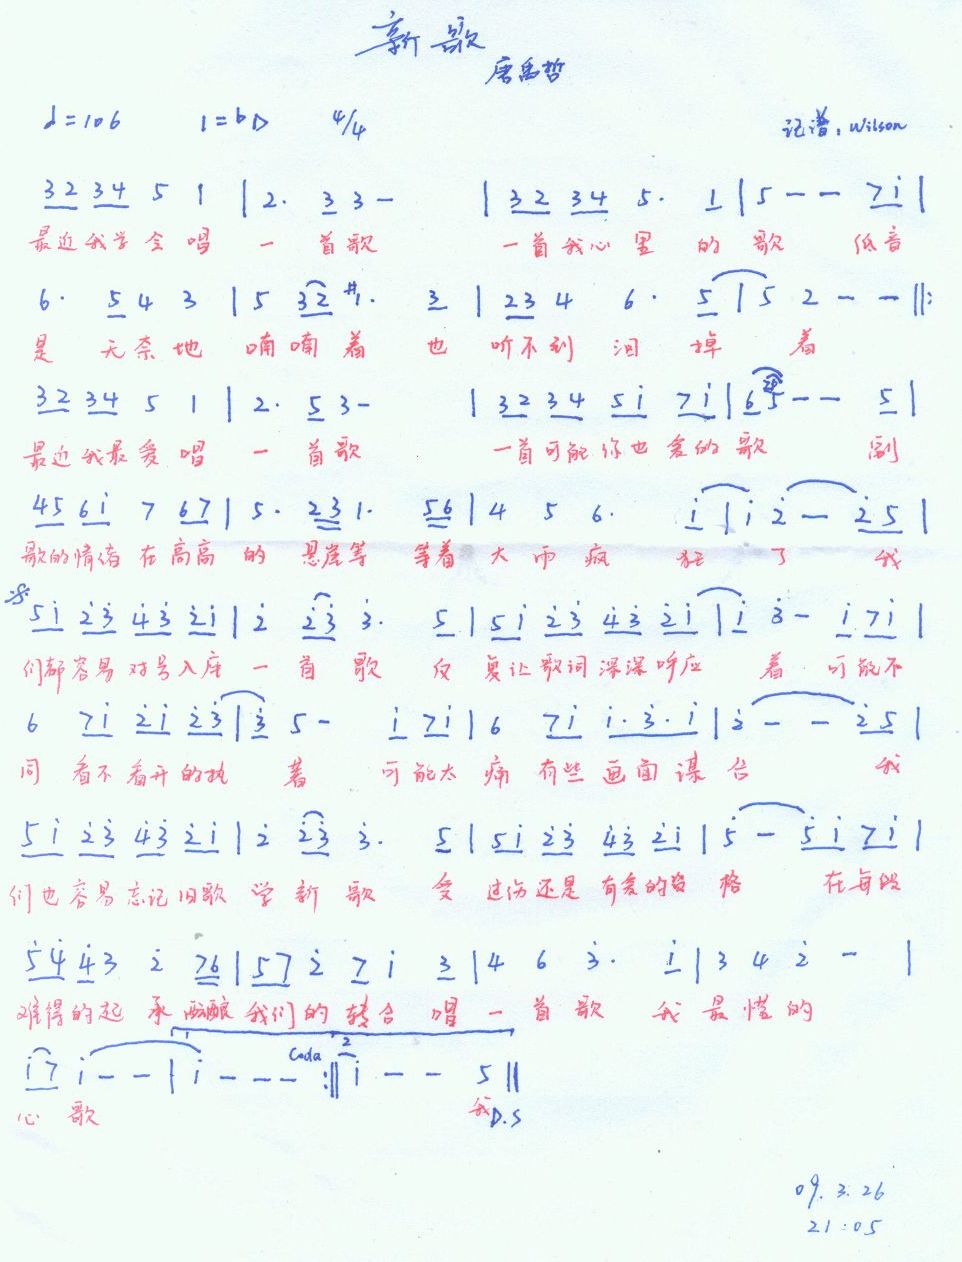 新歌
唐禹哲
♩=106 1=♭D 4/4 记谱:Wilson
3 2 3 4 5 1 | 2· 3 3 - | 3 2 3 4 5· 1 | 5 - - 7 i |
最近我学会唱一首歌 一首我心里的歌 低音
6· 5 4 3 | 5 3 2 #1· 3 | 2 3 4 6· 5 | 5 2 - - ‖:
是无奈地喃喃着也听不到泪掉着
3 2 3 4 5 1 | 2· 5 3 - | 3 2 3 4 5 i 7 i | 6 5 - - 5 |
最近我最爱唱一首歌 一首可能你也爱的歌 副
4 5 6 i 7 6 7 | 5· 2 3 1· 5 6 | 4 5 6· i | i 2̇ - 2̇ 5 |
歌的情绪在高高的悬崖等 等着大雨疯狂了 我
5 i 2̇ 3̇ 4̇ 3̇ 2̇ i | 2̇ 2̇ 3̇ 3̇· 5 | 5 i 2̇ 3̇ 4̇ 3̇ 2̇ i | i 3̇ - i 7 i |
们都容易对号入座一首歌 反复让歌词深深呼应着 可能不
6 7 i 2̇ i 2̇ 3̇ | 3̇ 5 - i 7 i | 6 7 i i·3̇·i | 2̇ - - 2̇ 5 |
同看不看开的执著 可能太痛有些画面谋合 我
5 i 2̇ 3̇ 4̇ 3̇ 2̇ i | 2̇ 2̇ 3̇ 3̇· 5 | 5 i 2̇ 3̇ 4̇ 3̇ 2̇ i | 5̇ - 5̇ i 7 i |
们也容易忘记旧歌学新歌 受过伤还是有爱的资格 在每段
5̇ 4̇ 4̇ 3 2̇ 7 6 | 5 7 2̇ 7 i 3 | 4 6 3· i | 3 4 2̇ - |
难得的起承酝酿我们的转合唱一首歌 我最怪的
i 7 i - - | i - - - Coda :‖ 2 i - - 5 ‖
心歌 我 D.S
09.3.26
21:05